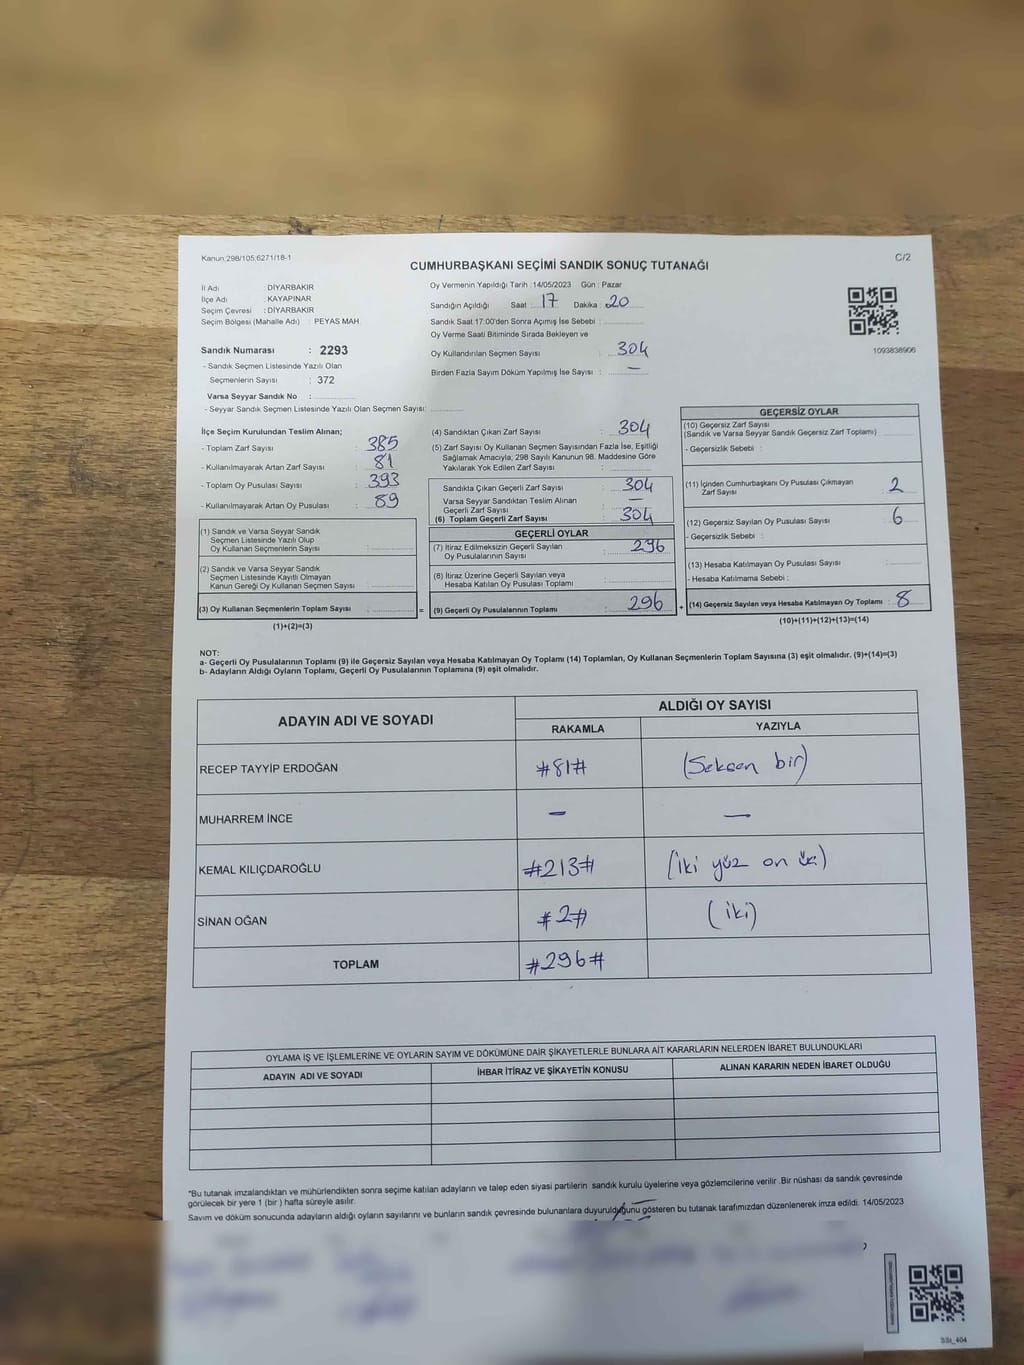 Kanun:298/105;6271/18-1
C/2
CUMHURBAŞKANI SEÇİMİ SANDIK SONUÇ TUTANAĞI
İl Adı : DİYARBAKIR
İlçe Adı : KAYAPINAR
Seçim Çevresi : DİYARBAKIR
Seçim Bölgesi (Mahalle Adı) : PEYAS MAH.
Oy Vermenin Yapıldığı Tarih : 14/05/2023 Gün : Pazar
Sandığın Açıldığı Saat : 17 Dakika : 20
Sandık Saat 17:00'den Sonra Açımış İse Sebebi :
Oy Verme Saati Bitiminde Sırada Bekleyen ve
Oy Kullandırılan Seçmen Sayısı : 304
Birden Fazla Sayım Döküm Yapılmış İse Sayısı : —
1093838906
Sandık Numarası : 2293
- Sandık Seçmen Listesinde Yazılı Olan
Seçmenlerin Sayısı : 372
Varsa Seyyar Sandık No :
- Seyyar Sandık Seçmen Listesinde Yazılı Olan Seçmen Sayısı:
İlçe Seçim Kurulundan Teslim Alınan;
- Toplam Zarf Sayısı : 385
- Kullanılmayarak Artan Zarf Sayısı : 81
- Toplam Oy Pusulası Sayısı : 393
- Kullanılmayarak Artan Oy Pusulası : 89
(1) Sandık ve Varsa Seyyar Sandık
Seçmen Listesinde Yazılı Olup
Oy Kullanan Seçmenlerin Sayısı :
(2) Sandık ve Varsa Seyyar Sandık
Seçmen Listesinde Kayıtlı Olmayan
Kanun Gereği Oy Kullanan Seçmen Sayısı :
(3) Oy Kullanan Seçmenlerin Toplam Sayısı : =
(1)+(2)=(3)
(4) Sandıktan Çıkan Zarf Sayısı : 304
(5) Zarf Sayısı Oy Kullanan Seçmen Sayısından Fazla İse, Eşitliği
Sağlamak Amacıyla; 298 Sayılı Kanunun 98. Maddesine Göre
Yakılarak Yok Edilen Zarf Sayısı :
Sandıkta Çıkan Geçerli Zarf Sayısı : 304
Varsa Seyyar Sandıktan Teslim Alınan
Geçerli Zarf Sayısı : —
(6) Toplam Geçerli Zarf Sayısı : 304
GEÇERLİ OYLAR
(7) İtiraz Edilmeksizin Geçerli Sayılan
Oy Pusulalarının Sayısı : 296
(8) İtiraz Üzerine Geçerli Sayılan veya
Hesaba Katılan Oy Pusulası Toplamı :
(9) Geçerli Oy Pusulalarının Toplamı : 296 +
GEÇERSİZ OYLAR
(10) Geçersiz Zarf Sayısı
(Sandık ve Varsa Seyyar Sandık Geçersiz Zarf Toplamı)
- Geçersizlik Sebebi :
(11) İçinden Cumhurbaşkanı Oy Pusulası Çıkmayan
Zarf Sayısı : 2
(12) Geçersiz Sayılan Oy Pusulası Sayısı : 6
- Geçersizlik Sebebi :
(13) Hesaba Katılmayan Oy Pusulası Sayısı :
- Hesaba Katılmama Sebebi :
(14) Geçersiz Sayılan veya Hesaba Katılmayan Oy Toplamı : 8
(10)+(11)+(12)+(13)=(14)
NOT:
a- Geçerli Oy Pusulalarının Toplamı (9) ile Geçersiz Sayılan veya Hesaba Katılmayan Oy Toplamı (14) Toplamları, Oy Kullanan Seçmenlerin Toplam Sayısına (3) eşit olmalıdır. (9)+(14)=(3)
b- Adayların Aldığı Oyların Toplamı, Geçerli Oy Pusulalarının Toplamına (9) eşit olmalıdır.
ADAYIN ADI VE SOYADI
ALDIĞI OY SAYISI
RAKAMLA YAZIYLA
RECEP TAYYİP ERDOĞAN #81# (Seksen bir)
MUHARREM İNCE — —
KEMAL KILIÇDAROĞLU #213# (iki yüz on üç)
SİNAN OĞAN #2# (iki)
TOPLAM #296#
OYLAMA İŞ VE İŞLEMLERİNE VE OYLARIN SAYIM VE DÖKÜMÜNE DAİR ŞİKAYETLERLE BUNLARA AİT KARARLARIN NELERDEN İBARET BULUNDUKLARI
ADAYIN ADI VE SOYADI İHBAR İTİRAZ VE ŞİKAYETİN KONUSU ALINAN KARARIN NEDEN İBARET OLDUĞU
*Bu tutanak imzalandıktan ve mühürlendikten sonra seçime katılan adayların ve talep eden siyasi partilerin sandık kurulu üyelerine veya gözlemcilerine verilir .Bir nüshası da sandık çevresinde
görülecek bir yere 1 (bir ) hafta süreyle asılır.
Sayım ve döküm sonucunda adayların aldığı oyların sayılarını ve bunların sandık çevresinde bulunanlara duyurulduğunu gösteren bu tutanak tarafımızdan düzenlenerek imza edildi. 14/05/2023
SSt_404